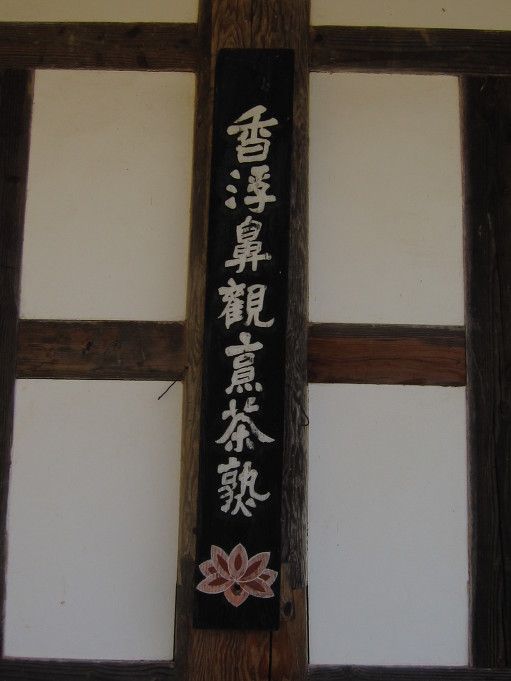 香浮鼻觀烹茶熟